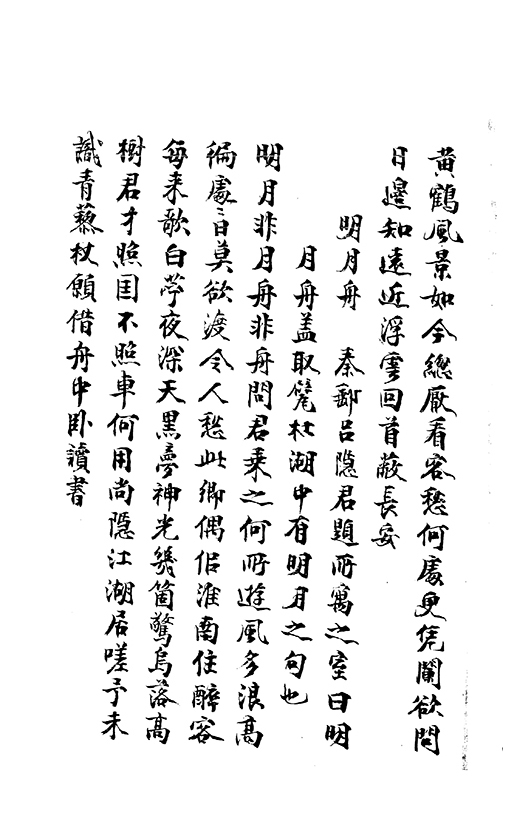 黄鶴風景如今總厭看客愁何處更凭闌欲問
日邊知遠近浮雲回首蔽長安
明月舟　秦郵呂隱君題所寓之室曰明
月舟盖取甓社湖中有明月之句也
明月非月舟非舟問君乗之何所遊風多浪髙
徧處〻日莫欲渡令人愁此郷偶侣淮南住醉客
每来歌白苧夜深天黒夢神光幾箇驚烏落髙
樹君才照国不照車何用尚隱江湖居嗟予未
識青藜杖願借舟中卧讀書